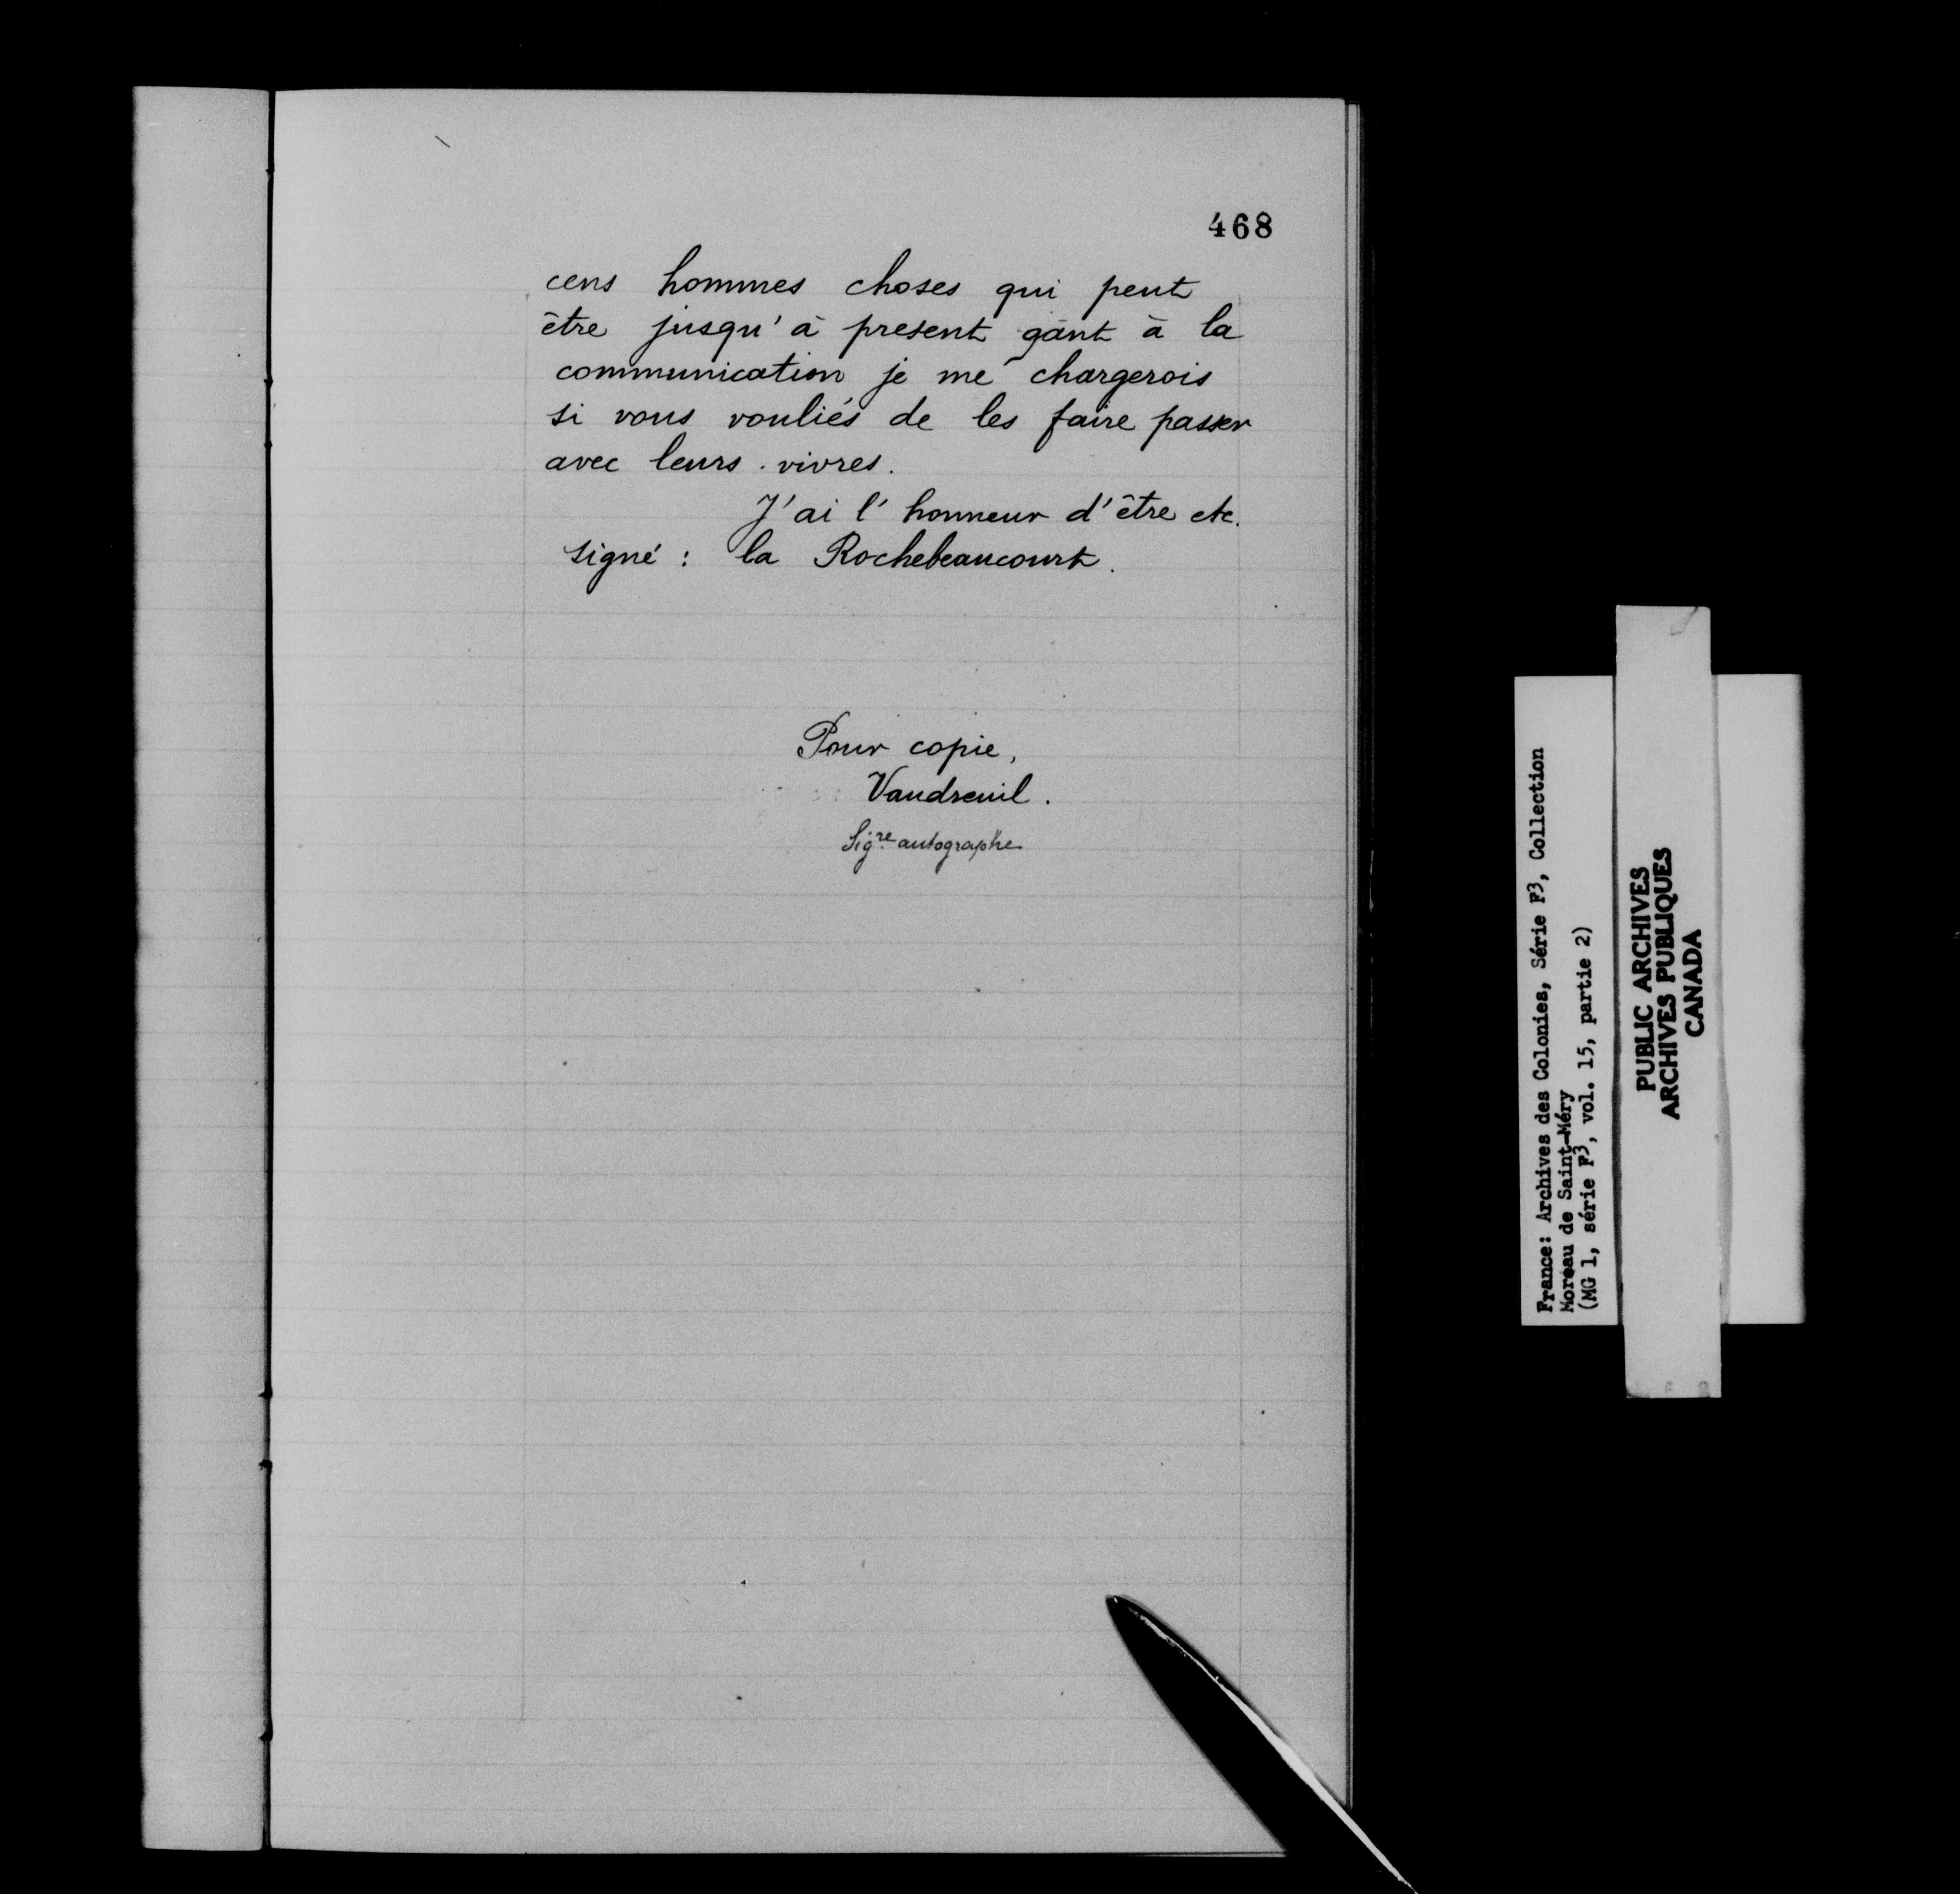 468
cens hommes choses qui peut
être jusqu'à present gant à la
communication je me chargerois
si vous vouliés de les faire passer
avec leurs vivres.
J'ai l'honneur d'être etc.
signé : la Rochebeaucourt.
Pour copie,
Vaudreuil.
Sigre autographe
France: Archives des Colonies, Série F3, Collection
Moreau de Saint-Méry
(MG 1, série F3, vol. 15, partie 2)
PUBLIC ARCHIVES
ARCHIVES PUBLIQUES
CANADA